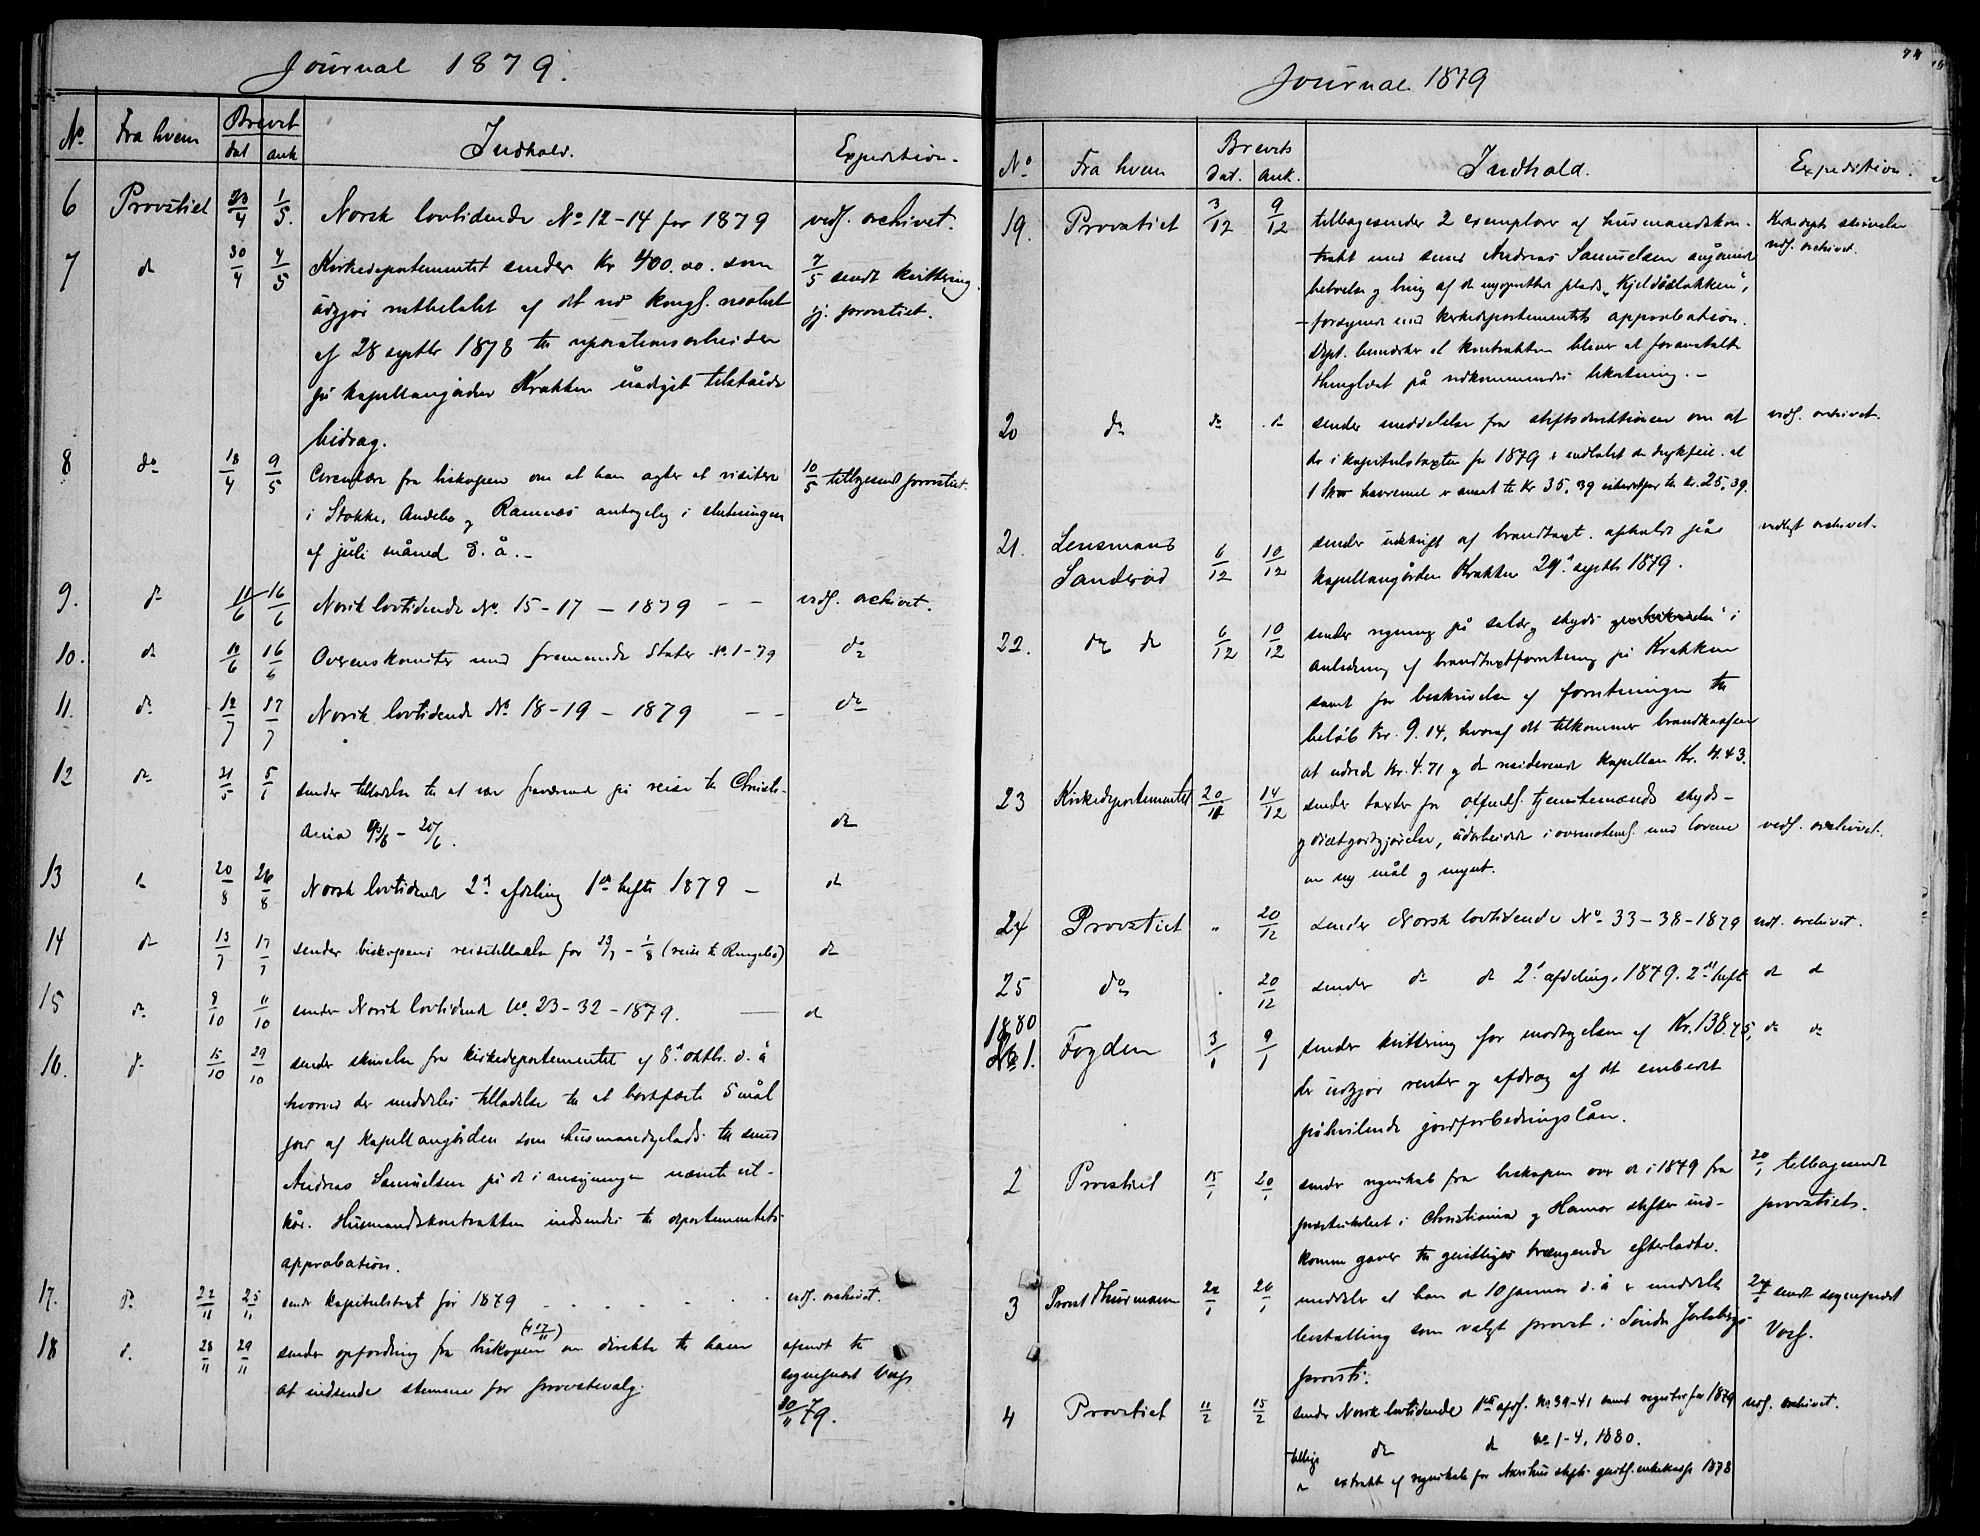 Journal 1879.
No. Fra hvem Brevet dat ank Indhold. Expedition.
6 Provstiet 23/4 1/5. Norsk lovtidende No 12-14 for 1879 vedl. archivet.
7 do 30/4 4/5 Kirkedepartementet sender Kr 400.00. som 7/5 sendt kvittering
udgjør restbeløbet af det ved kongl. resolut gj. provstiet.
af 28 septbr 1878 til reparationsarbeider
på kapellangården Krakken tilståede
bidrag.
8 do 18/4 9/5 Circulære fra biskopen om at han agter at visitere 10/5 tilbagesendt provstiet.
i Stokke, Andebo og Ramnæs antagelig i slutningen
af juli måned d. å. -
9. do 11/6 16/6 Norsk lovtidende No. 15-17 - 1879 - - vedl. archivet.
10. do 10/6 16/6 Overenskomster med fremmede Stater No. 1-79 do
11. do 12/7 17/7 Norsk lovtidende No. 18-19 - 1879 - - do
12 do 21/5 5/6 sender tilladelse til at være fraværende på reise til Christi-
ania - 20/6. do
13 do 20/8 26/8 Norsk lovtidende 2den afdeling 1ste hefte 1879 - do
14 do 13/7 17/7 sender biskopens reisetilladelse for 29/7 - 1/8 (reise til Ringebo) do
15 do 8/10 11/10 sender Norsk lovtidende No. 23-32-1879. do
16. do 15/10 29/10 sender skrivelse fra kirkedepartementet af 8de oktbr. d. å
hvorved der meddeles tilladelse til at bortfæste 5 mål
jord af kapellangården som husmandsplads til smed
Andreas Samuelsen på de i ansøgningen nævnte vil-
kår. Husmandskontrakten indsendes til departementets
approbation.
17. do 22/11 25/11 sender kapitulstaxt for 1879 - - - - - vedl. archivet.
18 do 28/11 29/11 sender opfordring fra biskopen (af 17/11) om direkte til ham afsendt til
at indsende stemme for provstevalg. sognepræst Vogt
30/11 79.
74
Journal 1879
No Fra hvem Brevets Dat. Ank. Indhold. Expedition.
19. Provstiet 3/12 9/12 tilbagesender 2 exemplarer af husmandskon- Kirkedepts skrivelse
trakt med smed Andreas Samuelsen angående vedl. archivet.
bebyggelse og brug af den nyopsatte plads "Kjeldåsløkken",
- forsynede med kirkedepartementets approbation.
Dept. bemærker at kontrakten bliver at foranstalte
thinglæst på vedkommendes bekostning. -
20 do do do sender meddelelse fra stiftsdirektionen om at vedl. archivet.
der i kapitulstaxten for 1879 er indløbet en trykfeil. at
1 havremel er ansat til Kr 35,39 istedetfor til kr. 25,39.
21. Lensmand 6/12 10/12 sender udskrift af brandtaxt. afholdt på vedlagt archivet.
Sanderød kapellangården Krakken 29de septbr 1879.
22. do do 6/12 10/12 sender regning på salær og skyds i
anledning af brandtaxtforretning på Krakken
samt for beskrivelse af forretningen til
beløb Kr. 9.14, hvoraf det tilkommer brandkassen
at udrede Kr. 4.71 og den residerende kapellan Kr. 4.43.
23 Kirkedepartementet 20/11 14/12 sender taxter for offentl. tjenstemænds skyds-
og diætgodtgjørelse, udarbeidede i overensstemmelse med lovene vedl. archivet.
om ny mål og mynt.
24 Provstiet " 20/12 sender Norsk lovtidende No. 33-38-1879 vedl. archivet.
25 do . 20/12 sender do do 2den afdeling, 1879. 2det hefte do do
1880
1. Fogden 3/1 9/1 sender kvittering for modtagelsen af Kr. 138.75, do do
der udgjør renter og afdrag af det embedet
påhvilende jordforbedringslån.
2 Provstiet 15/1 20/1 sender regnskab fra biskopen over de i 1879 fra 20/1 tilbagesendt
præsteskabet i Christiania og Hamar stifter ind- provstiets.
komne gaver til geistliges trængende efterladte.
3 Provst Thurmann 22/1 26/1 meddeler at han den 10 januar d. å er meddelt 27/1 sendt sognepræst
bestalling som valgt provst i Søndre Jarlsbergs Vogt.
provsti.
4 Provstiet 11/2 15/2 sender Norsk lovtidende 1ste afd. No. 39-41 samt register for 1879 vedl. archivet.
tillige do do No 1-4, 1880.
do extrakt af regnskab for Akershus stifts geistl. enkekasse 1878